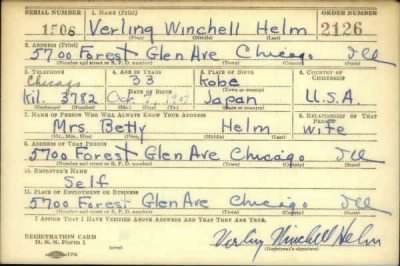 SERIAL NUMBER 1. NAME (Print) ORDER NUMBER
1506 Verling Winchell Helm 2126
(First) (Middle) (Last)
2. ADDRESS (Print)
5700 Forest Glen Ave Chicago Ill
(Number and street or R. F. D. number) (Town) (County) (State)
3. TELEPHONE 4. AGE IN YEARS 5. PLACE OF BIRTH 6. COUNTRY OF CITIZENSHIP
Chicago 33 Kobe
DATE OF BIRTH (Town or county)
Kil. 3982 Oct Japan U.S.A.
7. NAME OF PERSON WHO WILL ALWAYS KNOW YOUR ADDRESS 8. RELATIONSHIP OF THAT PERSON
Mrs Betty Helm wife
(Mr., Mrs., Miss) (First) (Middle) (Last)
9. ADDRESS OF THAT PERSON
5700 Forest Glen Ave Chicago Ill
(Number and street or R. F. D. number) (Town) (County) (State)
10. EMPLOYER'S NAME
Self
11. PLACE OF EMPLOYMENT OR BUSINESS
5700 Forest Glen Ave Chicago Ill
(Number and street or R. F. D. number) (Town) (County) (State)
I AFFIRM THAT I HAVE VERIFIED ABOVE ANSWERS AND THAT THEY ARE TRUE.
REGISTRATION CARD
D. S. S. Form 1 Verling Winchell Helm
(Registrant's signature)